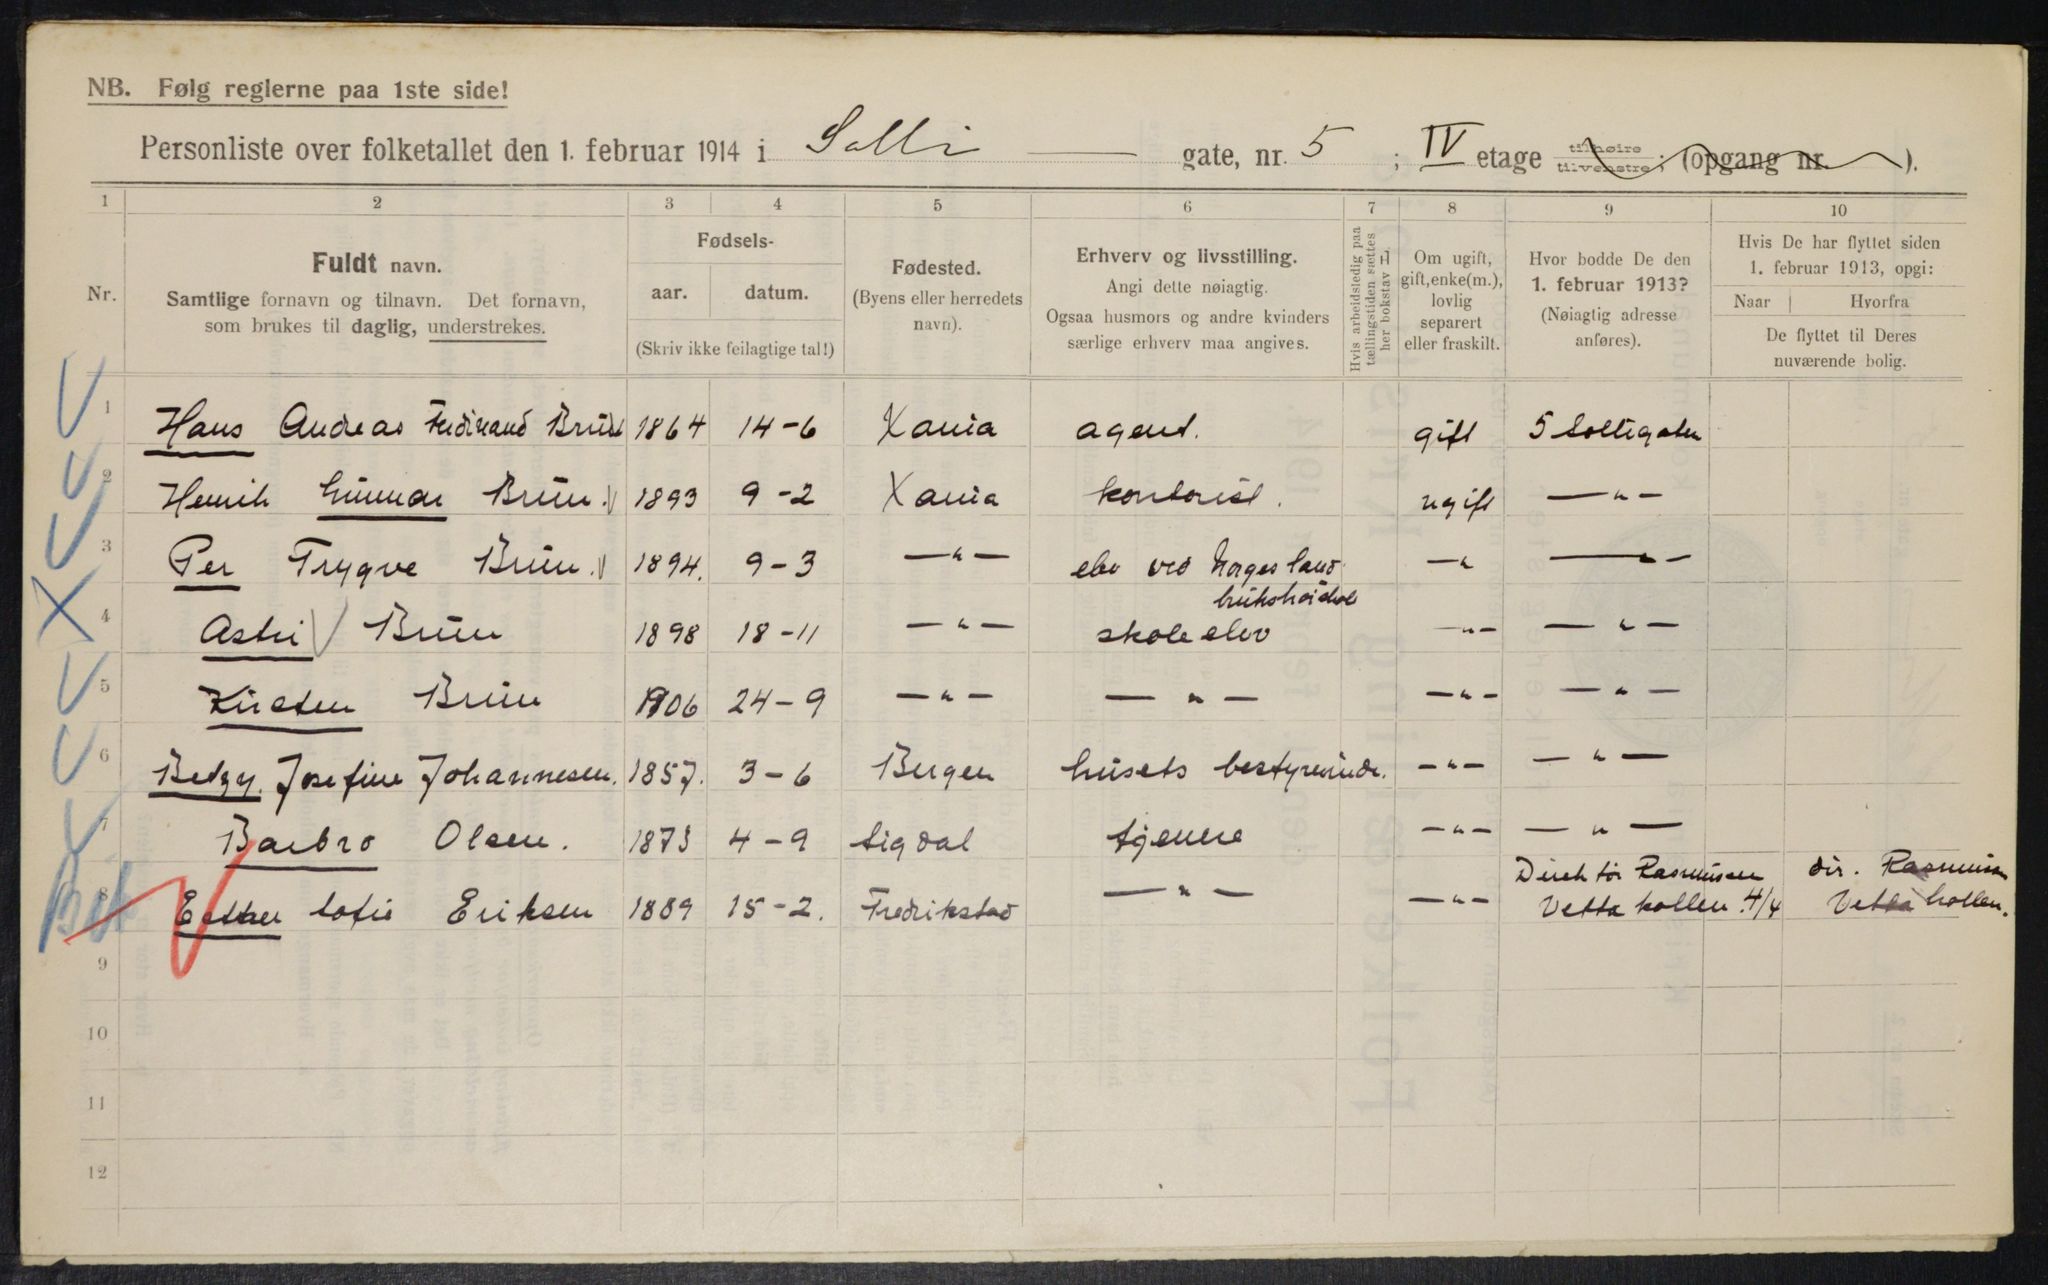 NB. Følg reglerne paa 1ste side!
Personliste over folketallet den 1. februar 1914 i Solli gate, nr. 5 ; IV etage tilhøire tilvenstre ; (opgang nr. ).
1 2 3 4 5 6 7 8 9 10
Nr.
Fuldt navn.
Samtlige fornavn og tilnavn. Det fornavn,
som brukes til daglig, understrekes.
Fødsels-
aar. datum.
(Skriv ikke feilagtige tal!)
Fødested.
(Byens eller herredets
navn).
Erhverv og livsstilling.
Angi dette nøiagtig.
Ogsaa husmors og andre kvinders
særlige erhverv maa angives.
Hvis arbeidsledig paa
tællingstiden sættes
her bokstav L.
Om ugift,
gift, enke(m.),
lovlig
separert
eller fraskilt.
Hvor bodde De den
1. februar 1913?
(Nøiagtig adresse
anføres).
Hvis De har flyttet siden
1. februar 1913, opgi:
Naar Hvorfra
De flyttet til Deres
nuværende bolig.
1 Hans Andreas Ferdinand Brun 1864 14-6 Xania agent. gift 5 Solligaten
2 Henrik Gunnar Brun. 1893 9-2 Xania kontorist. ugift —"—
3 Per Trygve Brun. 1894. 9-3 —"— elev ved Norges land-
brukshøiskole —" —"—
4 Astri Brun 1898 18-11 —"— skoleelev —"— —"—
5 Kirsten Brun 1906 24-9 —"— —"— —"— —"—
6 Betzy. Josefine Johannesen. 1857. 3-6 Bergen husets bestyrerinde. —"— —"—
7 Barbro Olsen. 1873 4-9 Sigdal tjenere —"— —"—
8 Esther Sofie Eriksen 1889 15-2. Fredrikstad —"— —"— Direktør Rasmussen
Vettakollen. 4/4 dir. Rasmussen
Vettakollen.
9
10
11
12